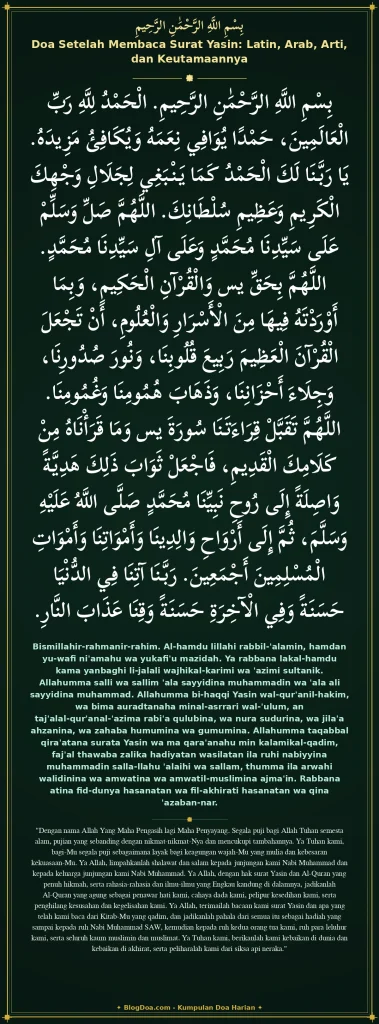 بِسْمِ اللَّهِ الرَّحْمَٰنِ الرَّحِيمِ
Doa Setelah Membaca Surat Yasin: Latin, Arab, Arti,
dan Keutamaannya
بِسْمِ اللَّهِ الرَّحْمَٰنِ الرَّحِيمِ. الْحَمْدُ لِلَّهِ رَبِّ
الْعَالَمِينَ، حَمْدًا يُوَافِي نِعَمَهُ وَيُكَافِئُ مَزِيدَهُ.
يَا رَبَّنَا لَكَ الْحَمْدُ كَمَا يَنْبَغِي لِجَلَالِ وَجْهِكَ
الْكَرِيمِ وَعَظِيمِ سُلْطَانِكَ. اللَّهُمَّ صَلِّ وَسَلِّمْ
عَلَى سَيِّدِنَا مُحَمَّدٍ وَعَلَى آلِ سَيِّدِنَا مُحَمَّدٍ.
اللَّهُمَّ بِحَقِّ يس وَالْقُرْآنِ الْحَكِيمِ، وَبِمَا
أَوْرَدْتَهُ فِيهَا مِنَ الْأَسْرَارِ وَالْعُلُومِ، أَنْ تَجْعَلَ
الْقُرْآنَ الْعَظِيمَ رَبِيعَ قُلُوبِنَا، وَنُورَ صُدُورِنَا،
وَجِلَاءَ أَحْزَانِنَا، وَذَهَابَ هُمُومِنَا وَغُمُومِنَا.
اللَّهُمَّ تَقَبَّلْ قِرَاءَتَنَا سُورَةَ يس وَمَا قَرَأْنَاهُ مِنْ
كَلَامِكَ الْقَدِيمِ، فَاجْعَلْ ثَوَابَ ذَلِكَ هَدِيَّةً
وَاصِلَةً إِلَى رُوحِ نَبِيِّنَا مُحَمَّدٍ صَلَّى اللَّهُ عَلَيْهِ
وَسَلَّمَ، ثُمَّ إِلَى أَرْوَاحِ وَالِدِينَا وَأَمْوَاتِنَا وَأَمْوَاتِ
الْمُسْلِمِينَ أَجْمَعِينَ. رَبَّنَا آتِنَا فِي الدُّنْيَا
حَسَنَةً وَفِي الْآخِرَةِ حَسَنَةً وَقِنَا عَذَابَ النَّارِ.
Bismillahir-rahmanir-rahim. Al-hamdu lillahi rabbil-'alamin, hamdan
yu-wafi ni'amahu wa yukafi'u mazidah. Ya rabbana lakal-hamdu
kama yanbaghi li-jalali wajhikal-karimi wa 'azimi sultanik.
Allahumma salli wa sallim 'ala sayyidina muhammadin wa 'ala ali
sayyidina muhammad. Allahumma bi-haqqi Yasin wal-qur'anil-hakim,
wa bima auradtanaha minal-asrari wal-'ulum, an
taj'alal-qur'anal-'azima rabi'a qulubina, wa nura sudurina, wa jila'a
ahzanina, wa zahaba humumina wa gumumina. Allahumma taqabbal
qira'atana surata Yasin wa ma qara'anahu min kalamikal-qadim,
faj'al thawaba zalika hadiyatan wasilatan ila ruhi nabiyyina
muhammadin salla-llahu 'alaihi wa sallam, thumma ila arwahi
walidinina wa amwatina wa amwatil-muslimina ajma'in. Rabbana
atina fid-dunya hasanatan wa fil-akhirati hasanatan wa qina
'azaban-nar.
"Dengan nama Allah Yang Maha Pengasih lagi Maha Penyayang. Segala puji bagi Allah Tuhan semesta
alam, pujian yang sebanding dengan nikmat-nikmat-Nya dan mencukupi tambahannya. Ya Tuhan kami,
bagi-Mu segala puji sebagaimana layak bagi keagungan wajah-Mu yang mulia dan kebesaran
kekuasaan-Mu. Ya Allah, limpahkanlah shalawat dan salam kepada junjungan kami Nabi Muhammad dan
kepada keluarga junjungan kami Nabi Muhammad. Ya Allah, dengan hak surat Yasin dan Al-Quran yang
penuh hikmah, serta rahasia-rahasia dan ilmu-ilmu yang Engkau kandung di dalamnya, jadikanlah
Al-Quran yang agung sebagai penawar hati kami, cahaya dada kami, pelipur kesedihan kami, serta
penghilang kesusahan dan kegelisahan kami. Ya Allah, terimalah bacaan kami surat Yasin dan apa yang
telah kami baca dari Kitab-Mu yang qadim, dan jadikanlah pahala dari semua itu sebagai hadiah yang
sampai kepada ruh Nabi Muhammad SAW, kemudian kepada ruh kedua orang tua kami, ruh para leluhur
kami, serta seluruh kaum muslimin dan muslimat. Ya Tuhan kami, berikanlah kami kebaikan di dunia dan
kebaikan di akhirat, serta peliharalah kami dari siksa api neraka."
✦ BlogDoa.com - Kumpulan Doa Harian ✦